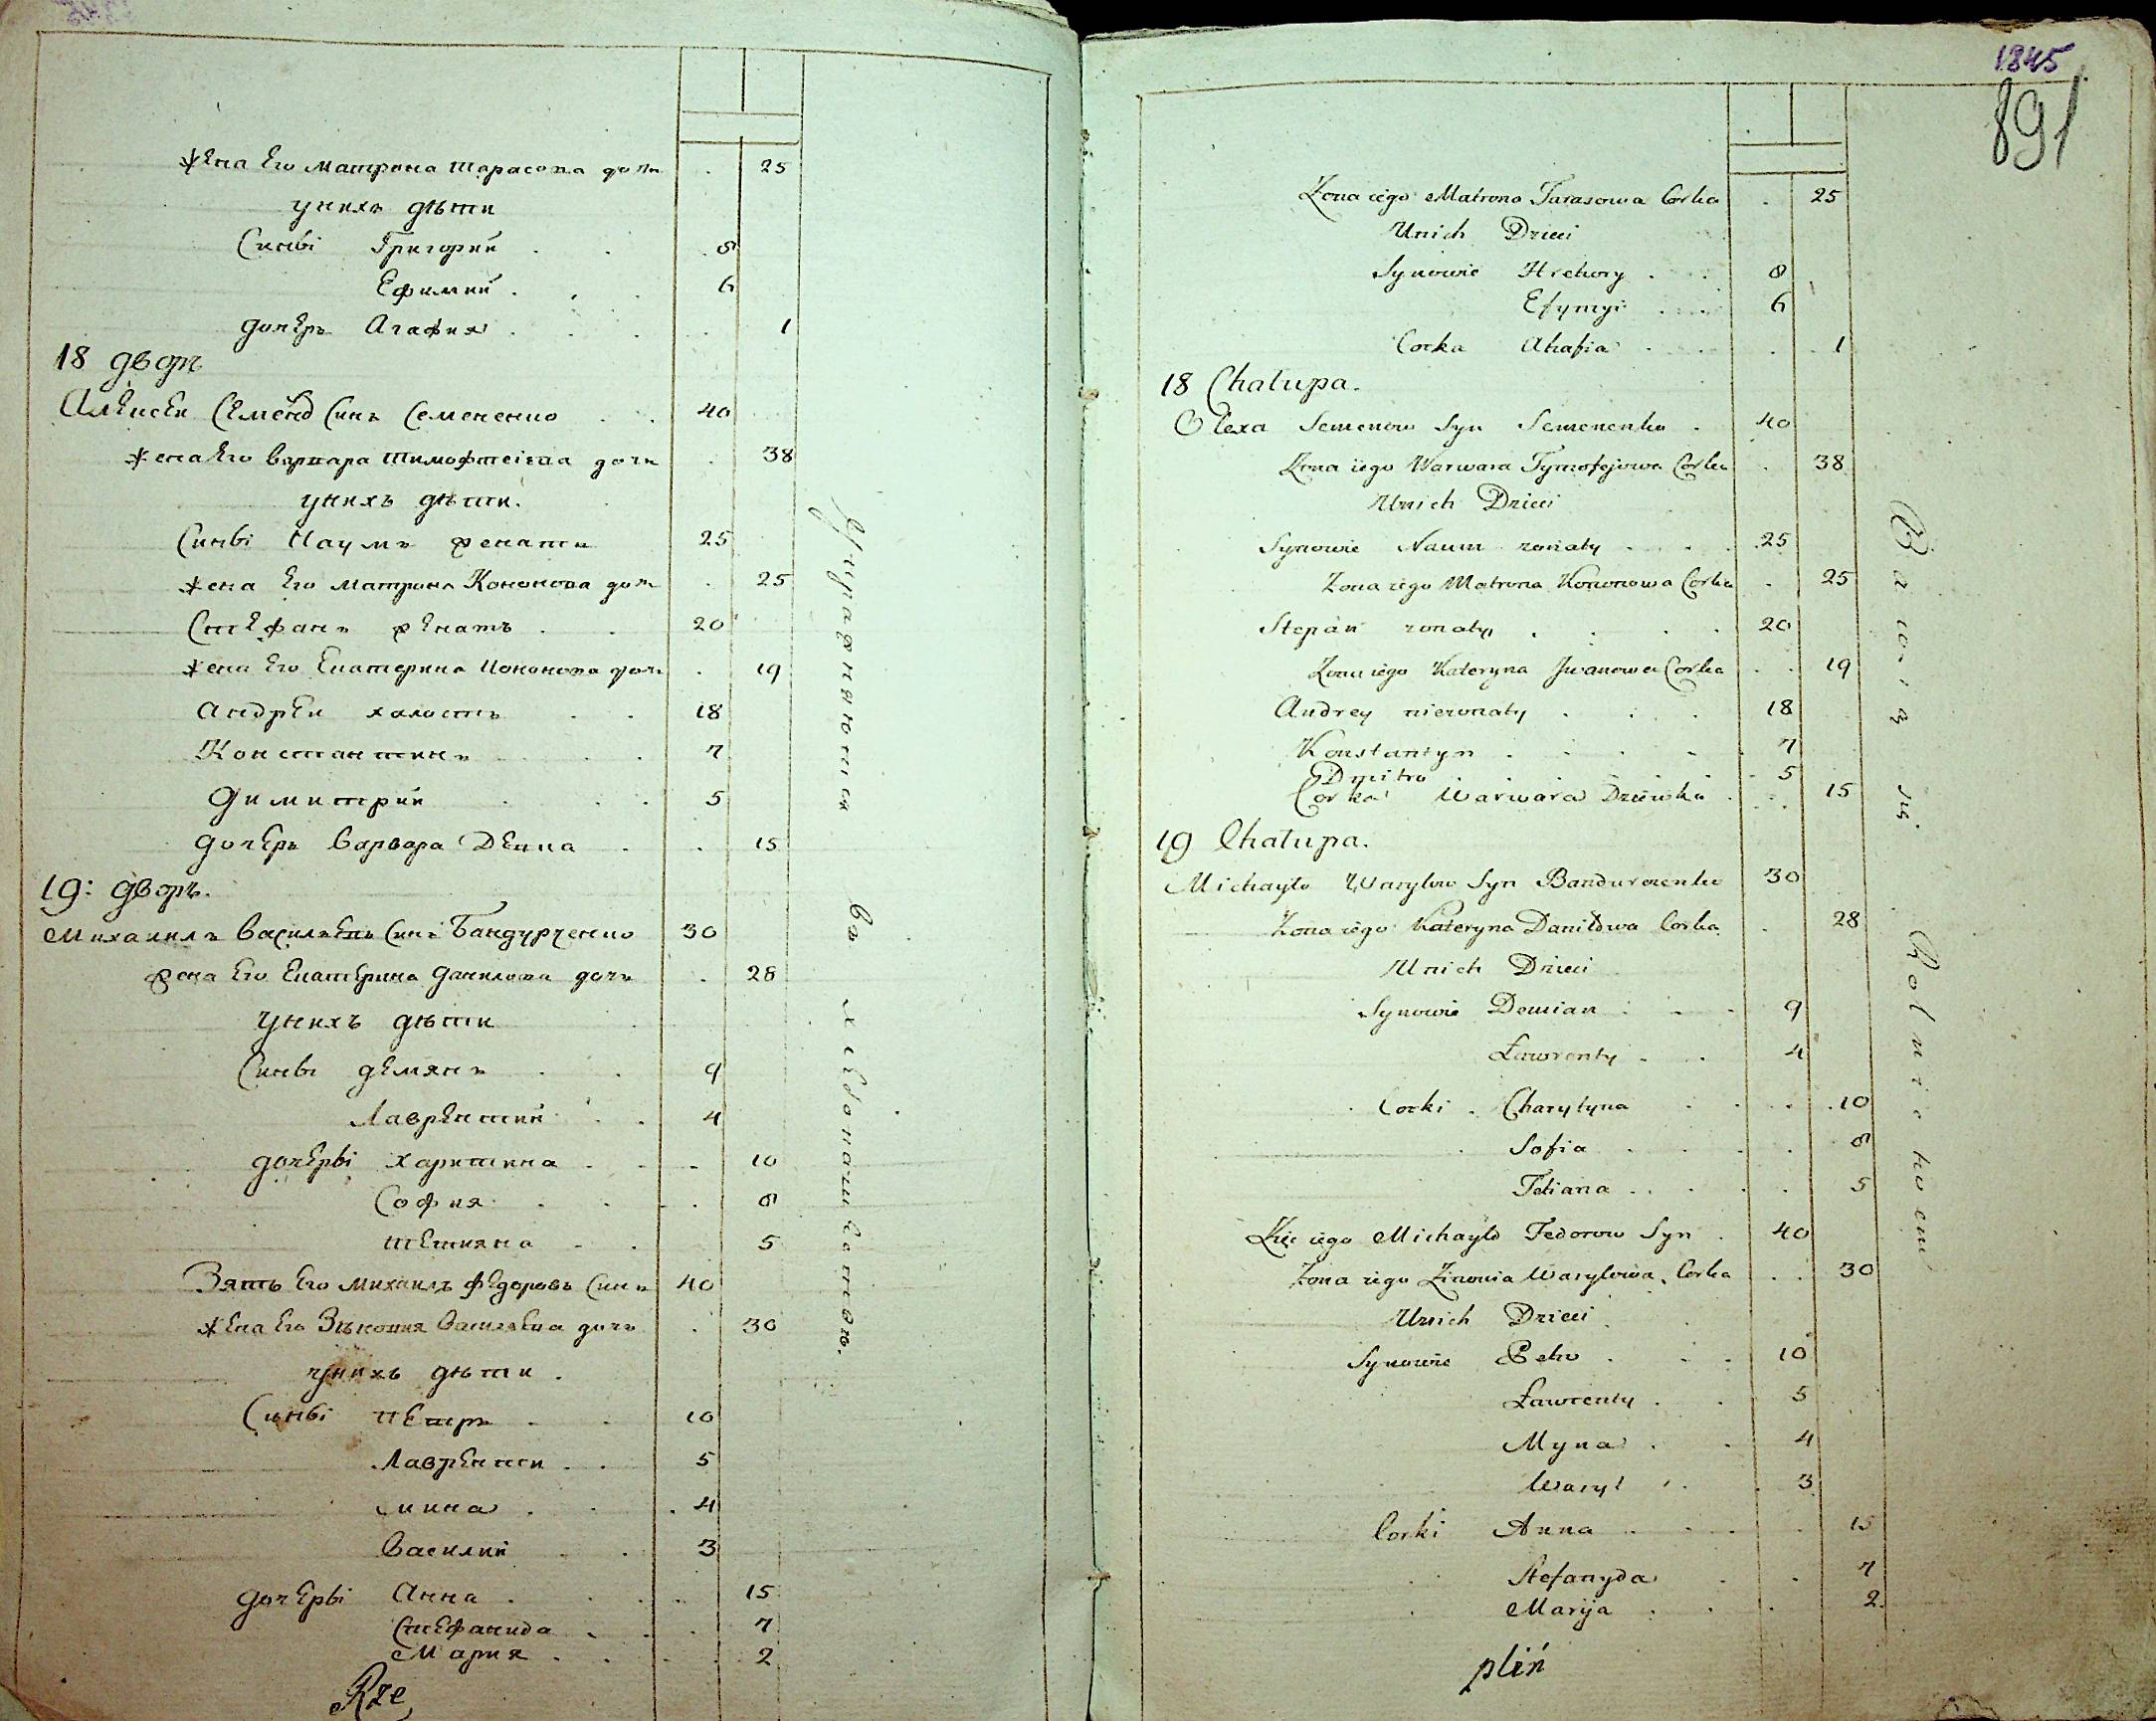 жена Его матрона тарасова дочь . 25
унихъ дѣти
Синві Григорий . . 8
Ефимий . . . 6
дочерь Агафия . . . 1
18 дворъ
Алексей Семенов Синъ Семененко . . 40
жена Его варвара тимофтеіева дочь . 38
унихъ дѣти.
Синві Наумъ женати 25
жена Его матрона Кононова дочь . 25
Стефанъ женатъ . . 20
жена Его Екатерина Иононова дочь . 19
андрей холостъ . . 18
Константинъ . . 7
димитрий . . . 5
дочерь варвара Девка . . 15
19: дворъ.
Михаилъ васильевъ Синъ Бандурченко 30
жена Его Екатерина данилова дочь . 28
унихъ дѣти
Синві демянъ . . 9
Лаврентий . . 4
дочерві харитина . . . 10
София . . . 8
тетияна . . 5
Зять Его михаилъ федоровъ Синъ 40
жена Его Зѣновия васильева дочь . 30
унихъ дѣти .
Синві петръ . . 10
Лавренти . . 5
мина . . . 4
василий . . 3
дочерві Анна . . . . 15
Стефанида . . . 7
Мария . . . . 2
Rze
Упражняются въ хлебопашествою.
1845
891
Zona iego Matrona Tarasowa Corka . 25
Unich Dzieci
Synowie Hrehory . . . 8
Efymyi . . . 6
Corka Ahafia . . . . 1
18 Chałupa.
Olexa Semenow Syn Semenenko . 40
Zona iego Warwara Tymofejowa Corka . 38
Unich Dzieci
Synowie Naum zonaty . . . . 25
Zona iego Matrona Kononowa Corka . 25
Stepan zonaty . . . . 20
Zona iego Kateryna Jwanowa Corka . . 19
Andrey niezonaty . . . 18
Konstantyn . . . . . 7
Dmitro . . . . 5
Corka Warwara Dziewka . . . 15
19 Chałupa.
Michayło Wasylow Syn Bandurczenko 30
Zona iego Kateryna Daniłowa Corka . 28
Unich Dzieci
Synowie Demian . . . 9
Ławrenty . . . 4
Corki . Charytyna . . . . 10
Sofia . . . . 8
Tetiana . . . . . 5
Zięc iego Michayło Fedorow Syn . 40
Zona iego Zinowia Wasylowa Corka . . 30
Unich Dzieci
Synowie Petro . . . 10
Ławrenty . . 5
Myna . . . 4
Wasyl . . . 3
Corki Anna . . . . 15
Stefanyda . . . 7
Marija . . . . 2
plin
Bawią się Rolnictwem